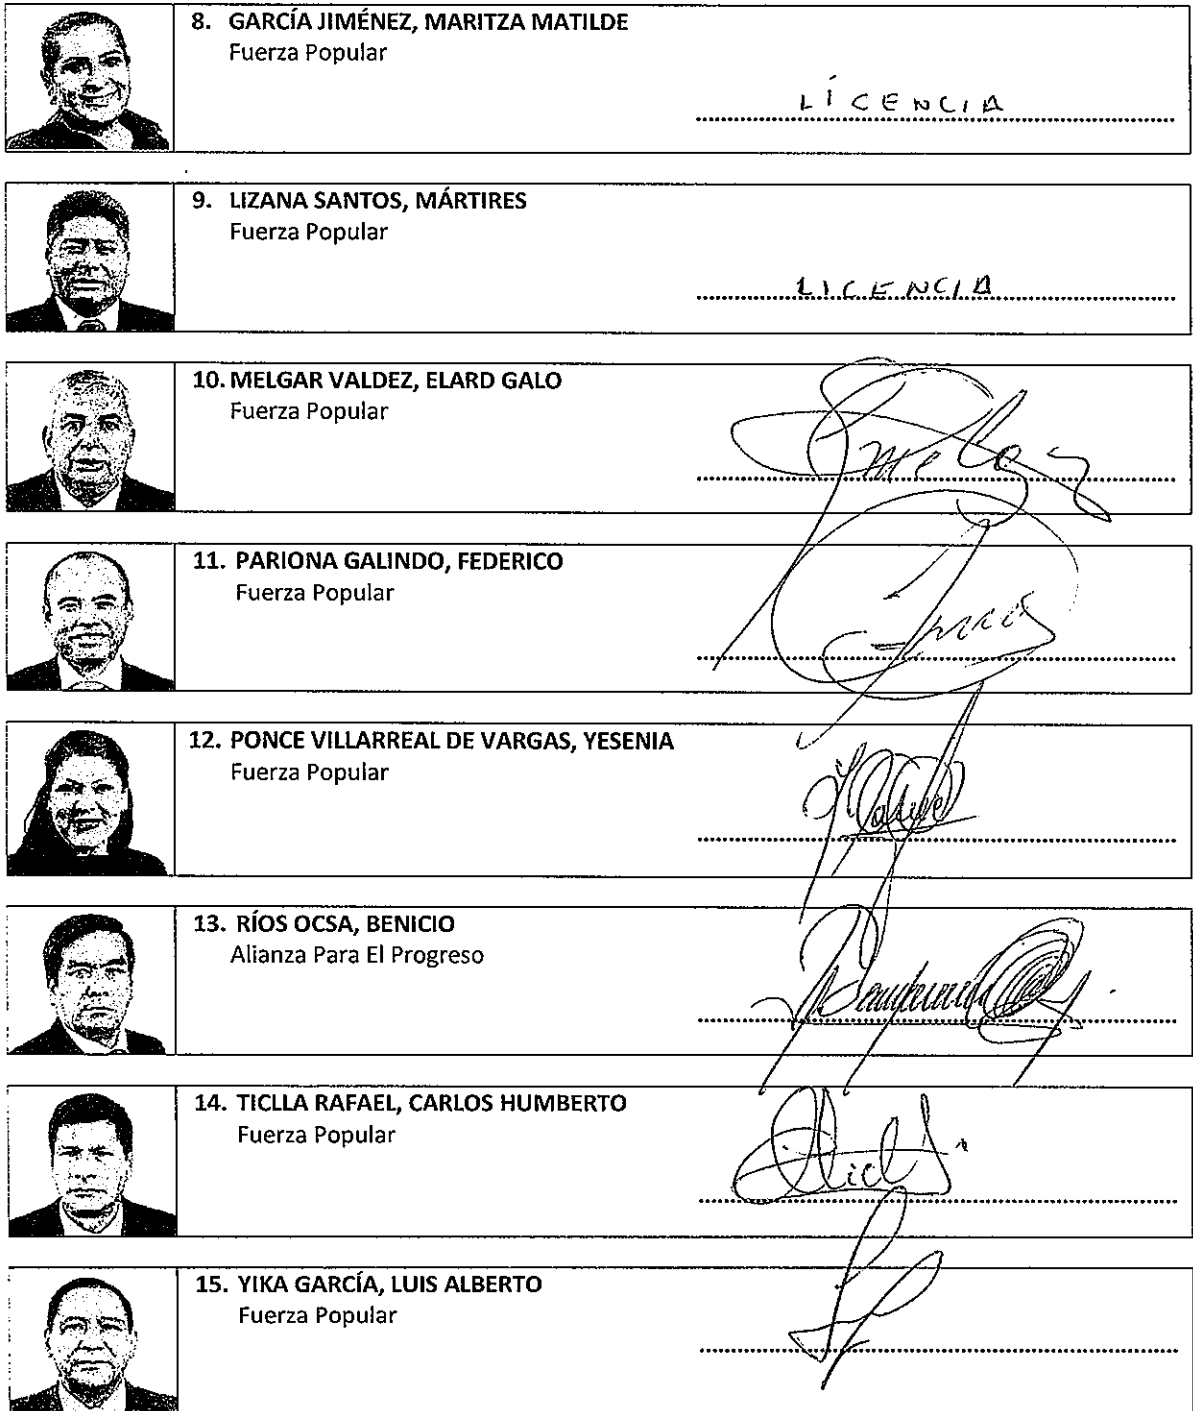 8. GARCÍA JIMÉNEZ, MARITZA MATILDE
Fuerza Popular
LICENCIA
9. LIZANA SANTOS, MÁRTIRES
Fuerza Popular
LICENCIA
10. MELGAR VALDEZ, ELARD GALO
Fuerza Popular
11. PARIONA GALINDO, FEDERICO
Fuerza Popular
12. PONCE VILLARREAL DE VARGAS, YESENIA
Fuerza Popular
13. RÍOS OCSA, BENICIO
Alianza Para El Progreso
14. TICLLA RAFAEL, CARLOS HUMBERTO
Fuerza Popular
15. YIKA GARCÍA, LUIS ALBERTO
Fuerza Popular